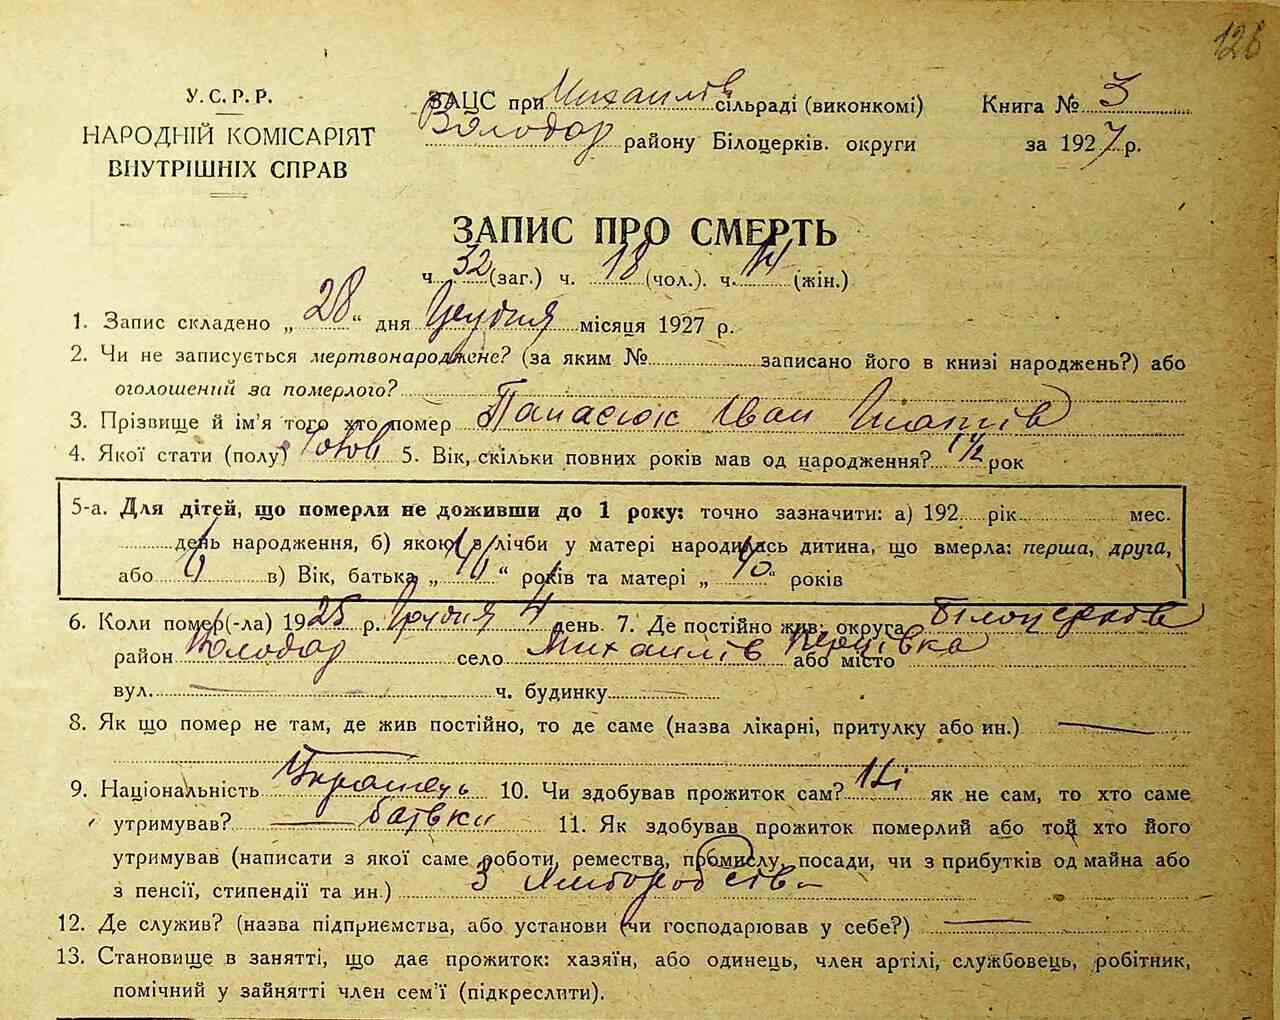 126
У.С.Р.Р.
НАРОДНІЙ КОМІСАРІЯТ
ВНУТРІШНІХ СПРАВ
ЗАЦС при Михайлів сільраді (виконкомі)
Володар району Білоцерків. округи
Книга № 3
за 1927 р.
ЗАПИС ПРО СМЕРТЬ
ч. 32 (заг.) ч. 18 (чол.). ч. 14 (жін.)
1. Запис складено „ 28 “ дня Грудня місяця 1927 р.
2. Чи не записується мертвонароджене? (за яким № записано його в книзі народжень?) або
оголошений за померлого?
3. Прізвище й ім'я того хто помер Панасюк Іван
4. Якої стати (полу) 5. Вік, скільки повних років мав од народження? 1 1/2 рок
5-а. Для дітей, що померли не доживши до 1 року: точно зазначити: а) 192 рік мес.
день народження, б) якою з лічби у матері народилась дитина, що вмерла: перша, друга,
або 6 в) Вік, батька „ “ років та матері „ 40 “ років
6. Коли помер(-ла) 1925 р. Грудня 4 день 7. Де постійно жив: округа Білоцерків
район Володар село Михайлів або місто
вул. — ч. будинку —
8. Як що помер не там, де жив постійно, то де саме (назва лікарні, притулку або ин.) —
9. Національність Українець 10. Чи здобував прожиток сам? Ні як не сам, то хто саме
утримував? — батьки 11. Як здобував прожиток померлий або той хто його
утримував (написати з якої саме роботи, ремества, промислу, посади, чи з прибутків од майна або
з пенсії, стипендії та ин.) З хліборобства
12. Де служив? (назва підприємства, або установи чи господарював у себе?) —
13. Становище в занятті, що дає прожиток: хазяїн, або одинець, член артілі, службовець, робітник,
помічний у зайнятті член сем'ї (підкреслити).